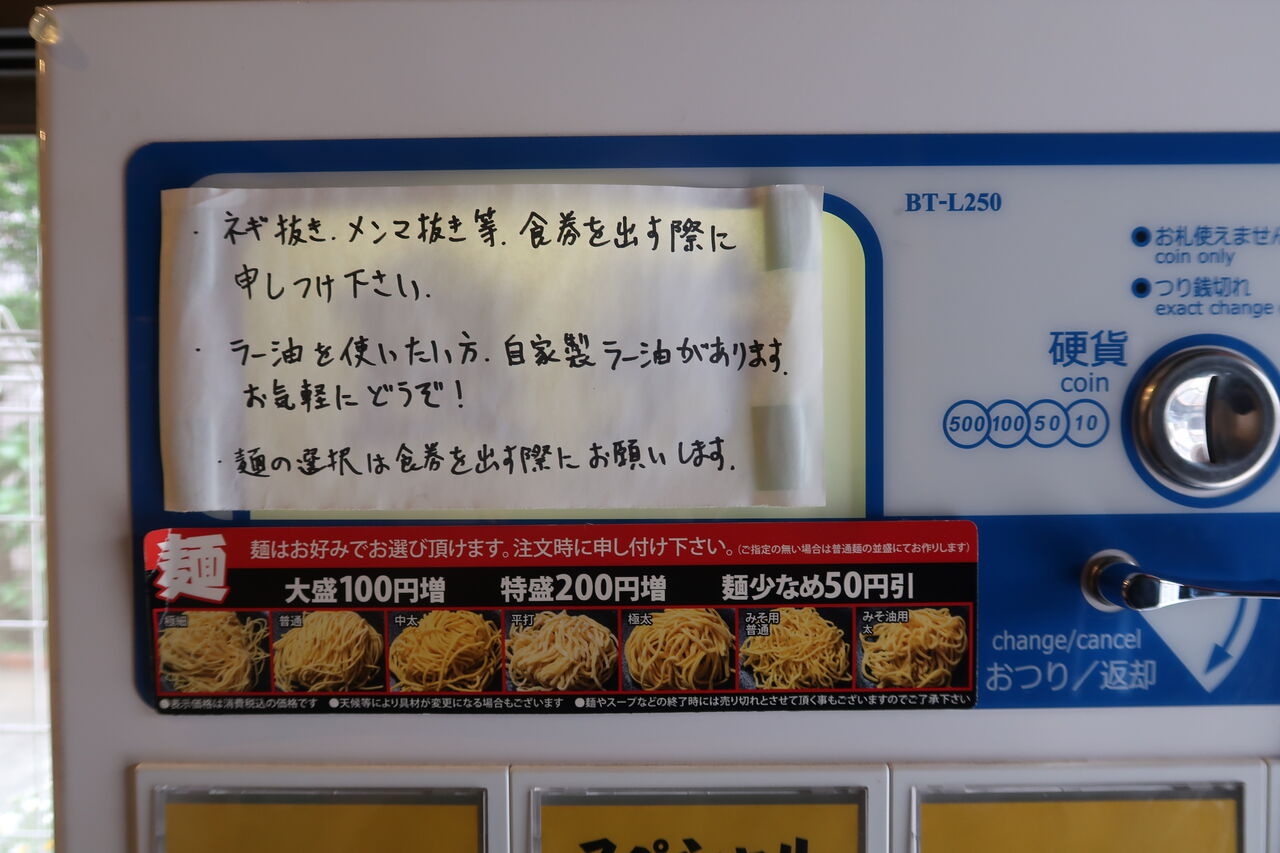 ・ネギ抜き.メンマ抜き等.食券を出す際に
申しつけ下さい.
・ラー油を使いたい方.自家製ラー油があります.
お気軽にどうぞ!
・麺の選択は食券を出す際にお願いします.
BT-L250
●お札使えません
coin only
●つり銭切れ
exact change
硬貨
coin
500 100 50 10
change/cancel
おつり/返却
麺
麺はお好みでお選び頂けます。注文時に申し付け下さい。(ご指定の無い場合は普通麺の並盛にてお作りします)
大盛100円増 特盛200円増 麺少なめ50円引
極細 普通 中太 平打 極太 みそ用 普通 みそ油用 太
●表示価格は消費税込の価格です ●天候等により具材が変更になる場合もございます ●麺やスープなどの終了時には売り切れとさせて頂く事もございますのでご了承下さい